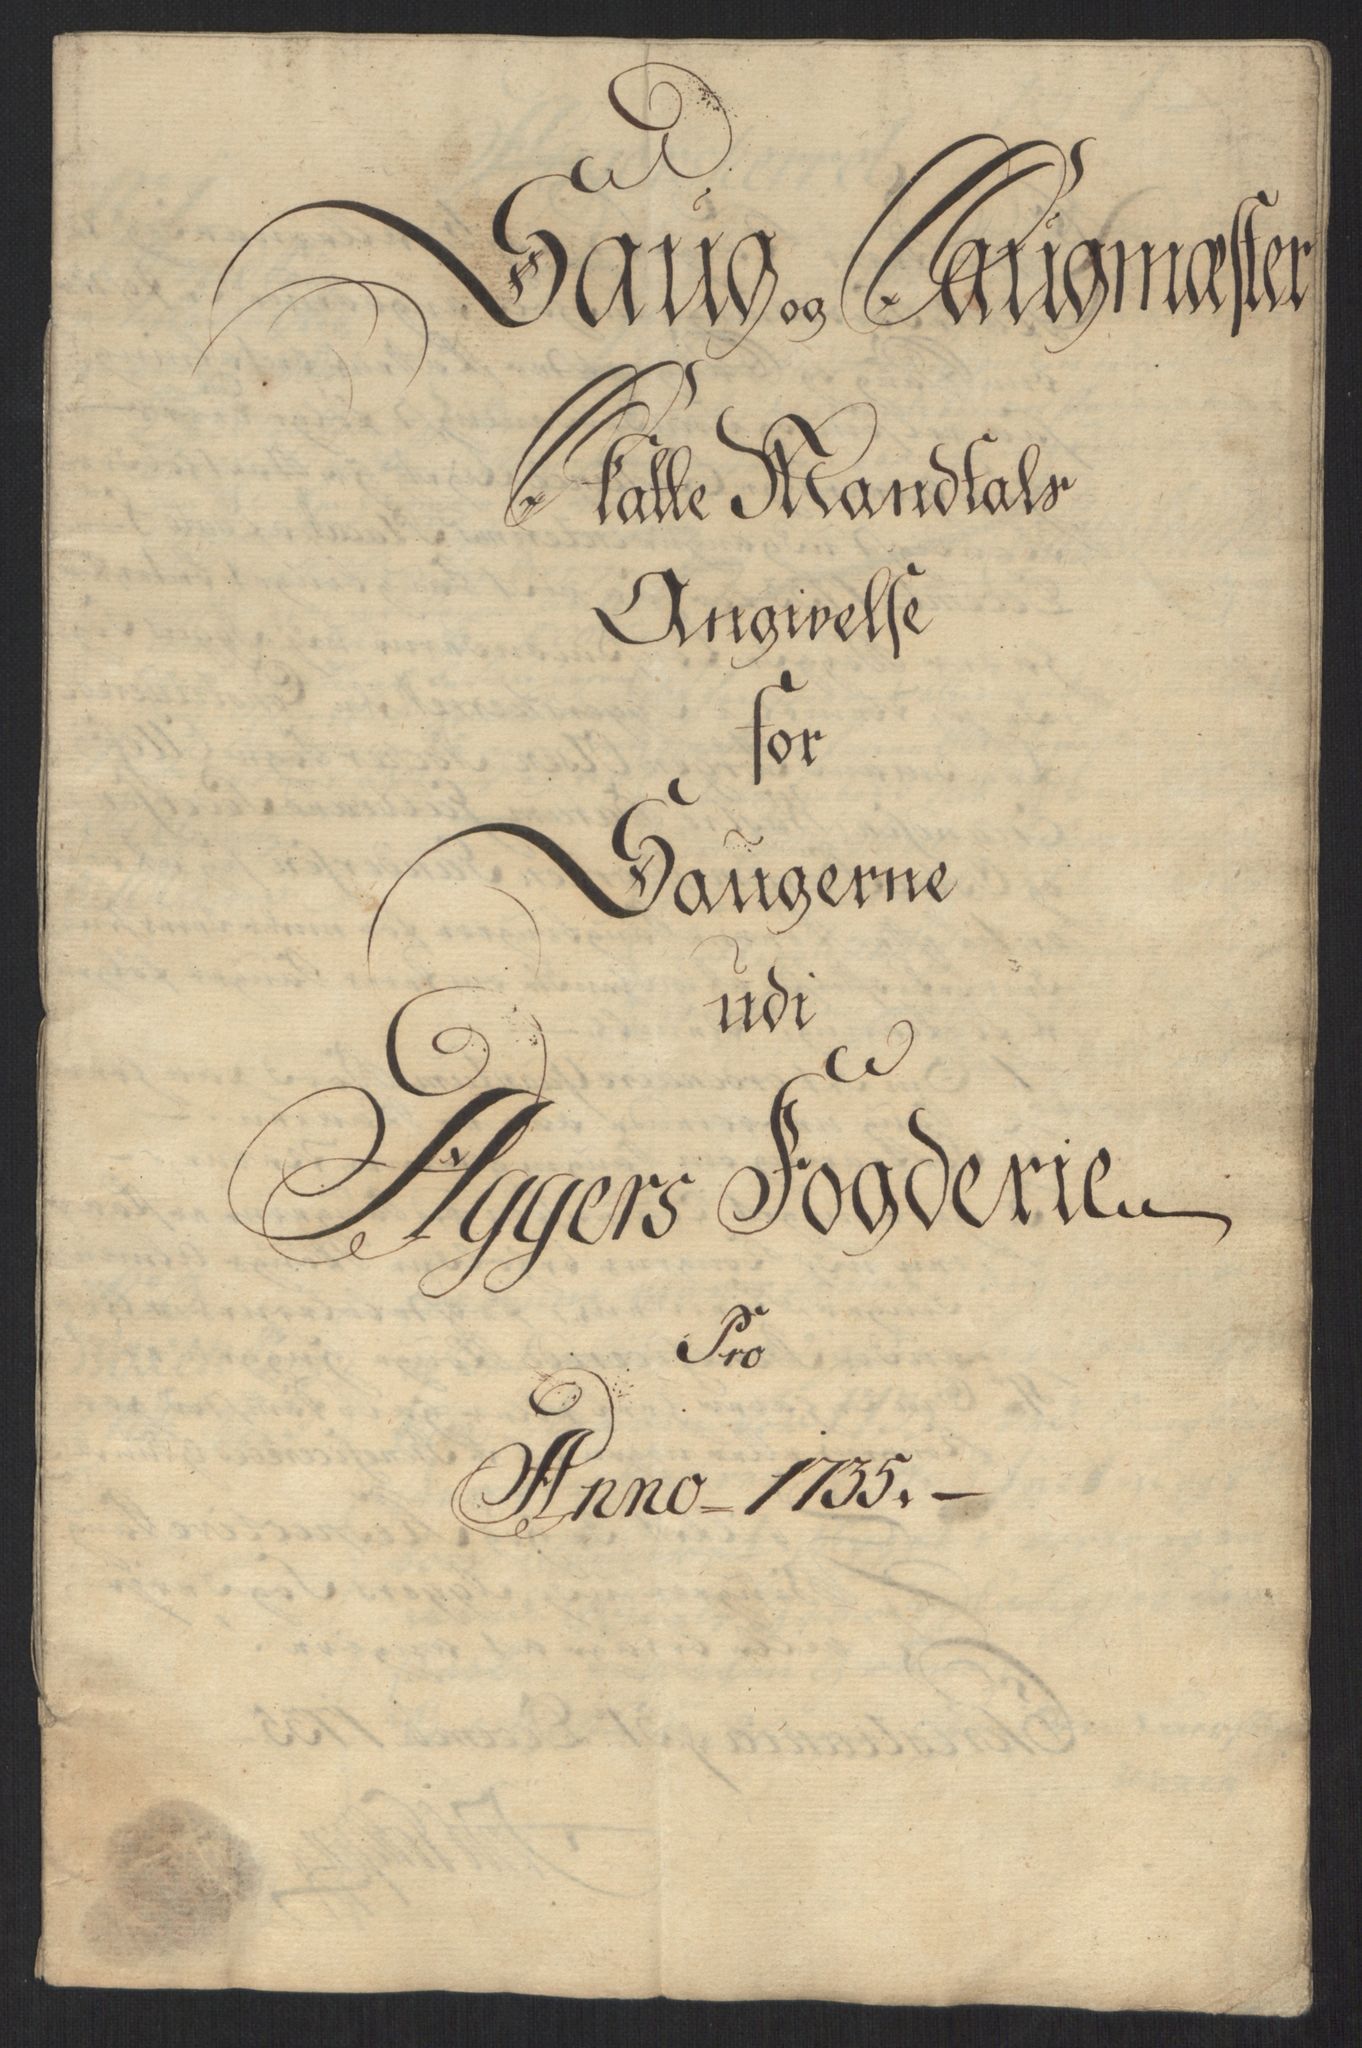 Saug og Saugmæster
Skatte Mandtals
Angivelse
for
Saugerne
udi
Aggers Fogderie
Pro
Anno - 1735. -